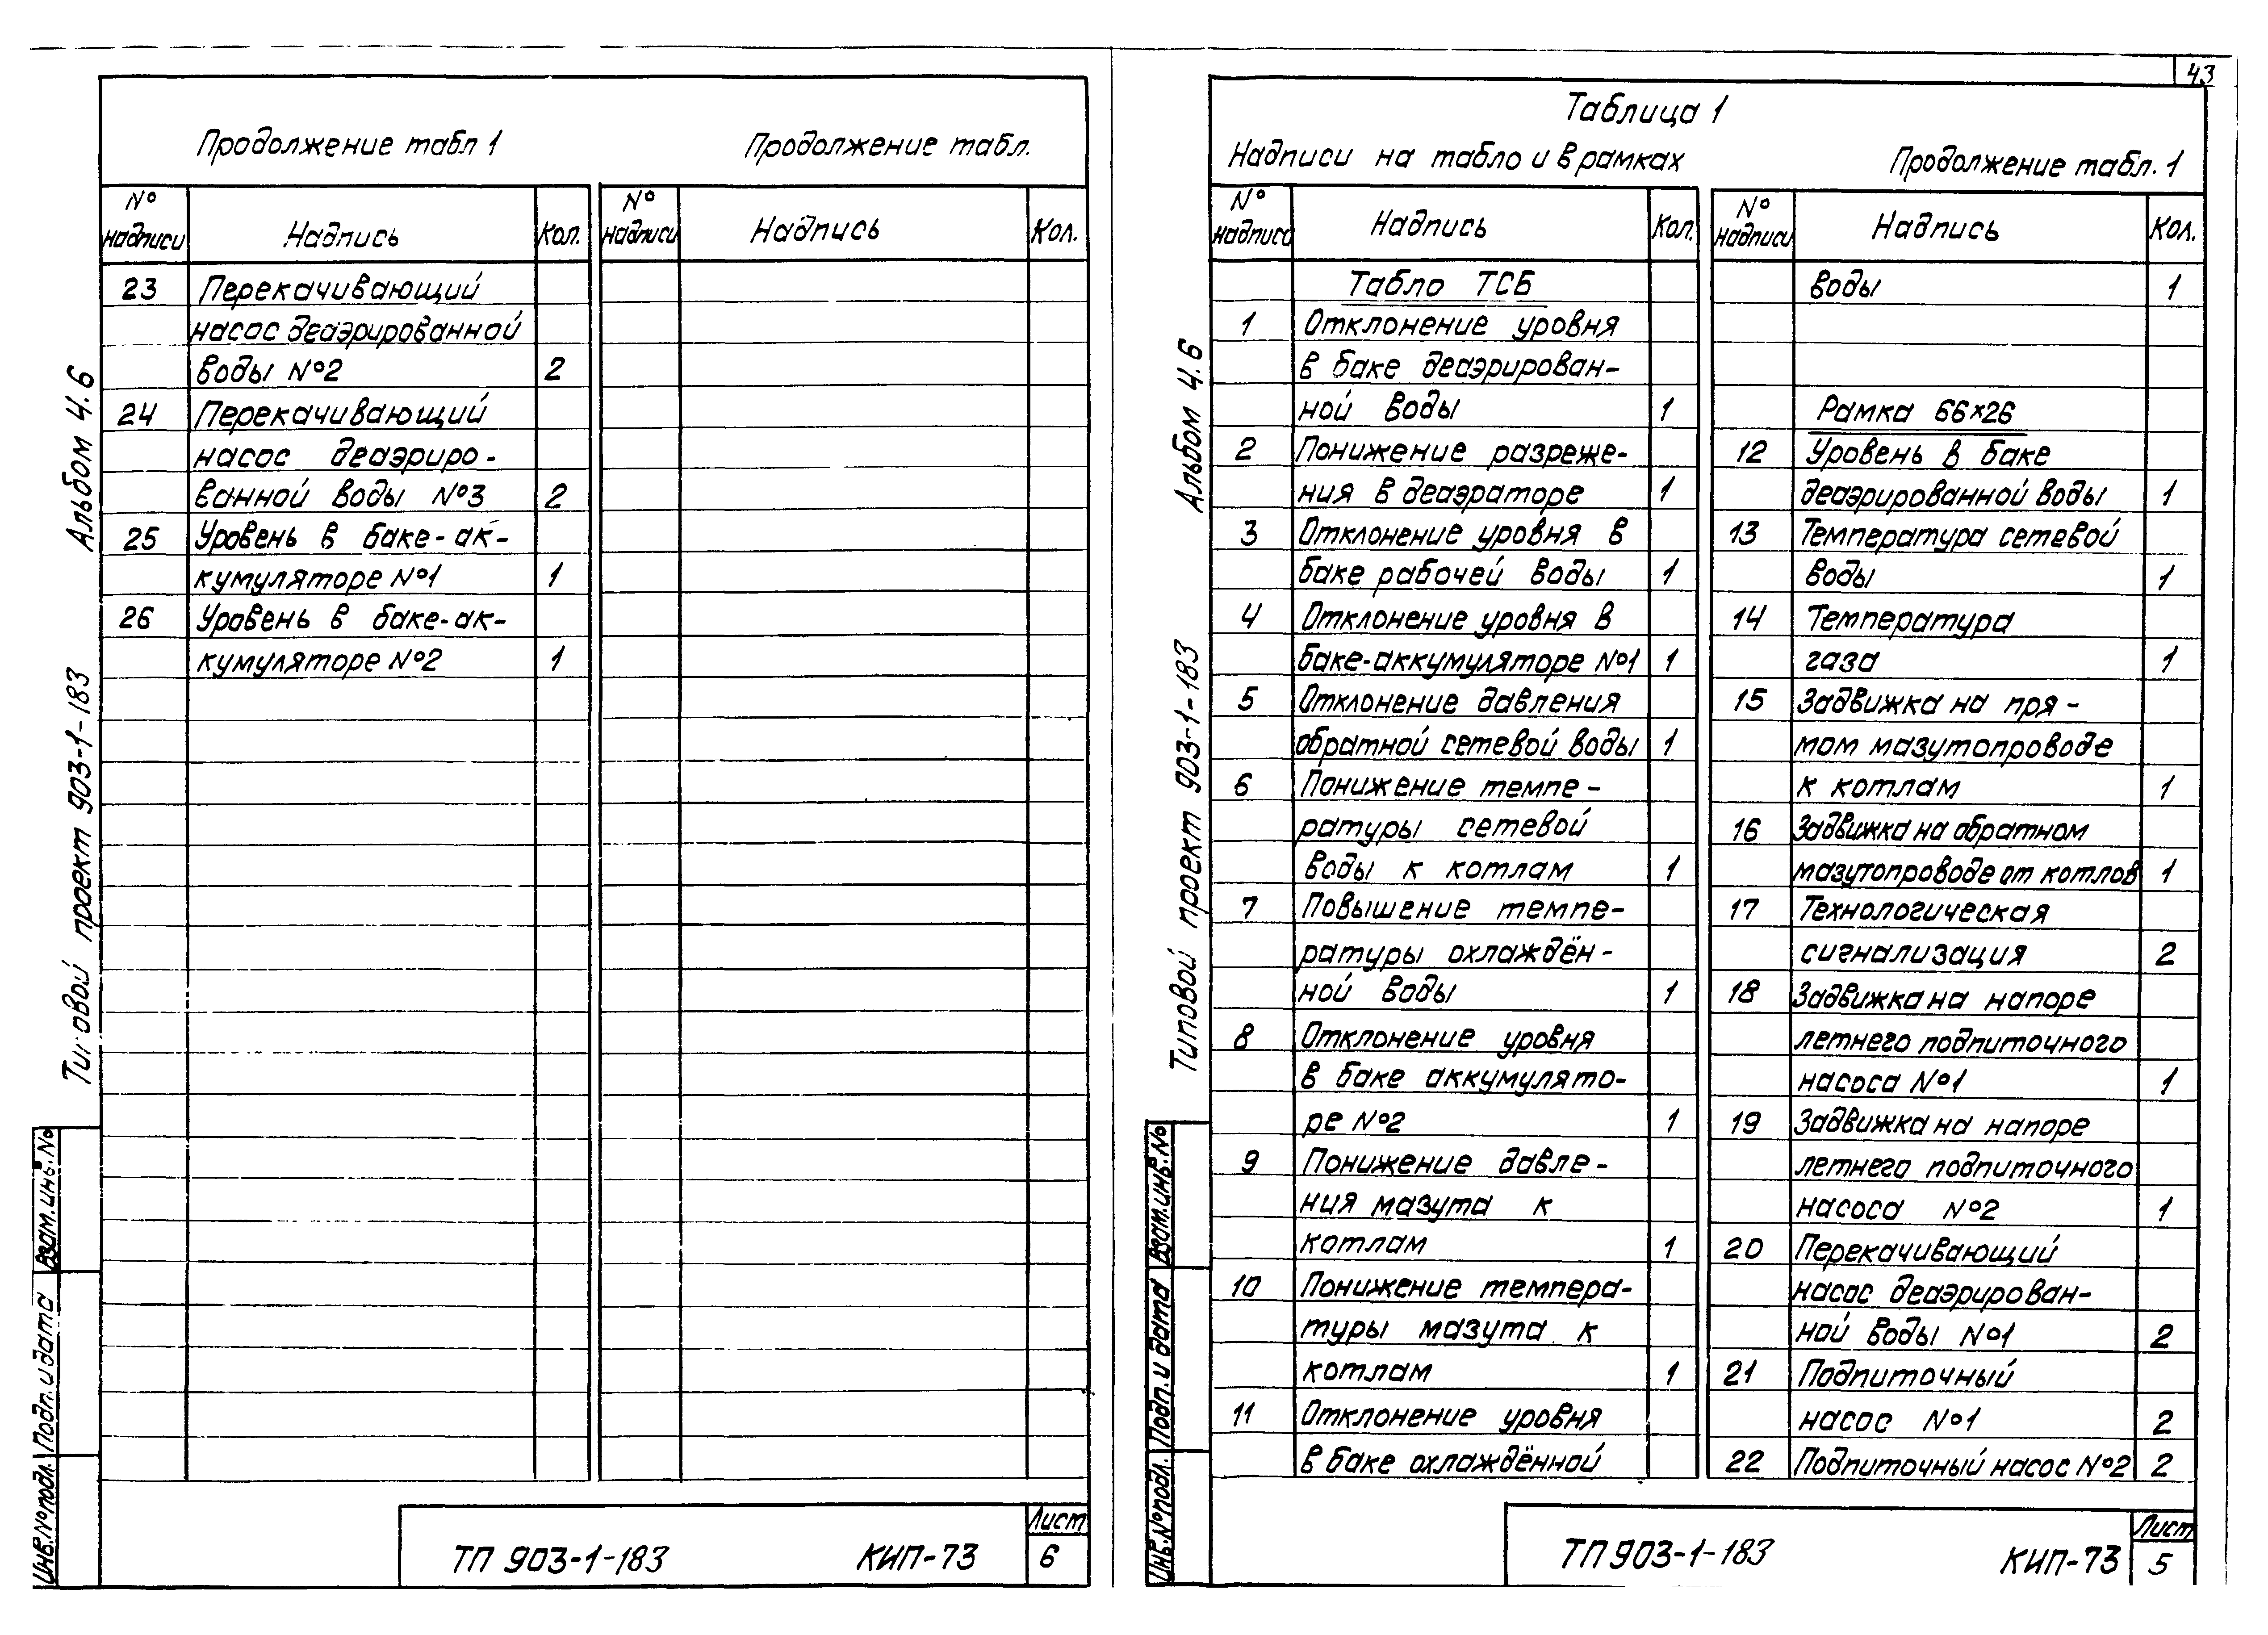 43
Продолжение табл 1
Продолжение табл.
№ надписи Надпись Кол.
№ надписи Надпись Кол.
23 Перекачивающий
насос деаэрированной
воды №2 2
24 Перекачивающий
насос деаэриро-
ванной воды №3 2
25 Уровень в баке-ак-
кумуляторе №1 1
26 Уровень в баке-ак-
кумуляторе №2 1
Альбом 4.6
Типовой проект 903-1-183
Взам.инв.№
Подп. и дата
Инв.№подл.
ТП 903-1-183 КИП-73
Лист
6
Таблица 1
Надписи на табло и в рамках
Продолжение табл. 1
№ надписи Надпись Кол.
Табло ТСБ
1 Отклонение уровня
в баке деаэрирован-
ной воды 1
2 Понижение разреже-
ния в деаэраторе 1
3 Отклонение уровня в
баке рабочей воды 1
4 Отклонение уровня в
баке-аккумуляторе №1 1
5 Отклонение давления
обратной сетевой воды 1
6 Понижение темпе-
ратуры сетевой
воды к котлам 1
7 Повышение темпе-
ратуры охлаждён-
ной воды 1
8 Отклонение уровня
в баке аккумулято-
ре №2 1
9 Понижение давле-
ния мазута к
котлам 1
10 Понижение темпера-
туры мазута к
котлам 1
11 Отклонение уровня
в баке охлаждённой
№ надписи Надпись Кол.
воды 1
Рамка 66×26
12 Уровень в баке
деаэрированной воды 1
13 Температура сетевой
воды 1
14 Температура
газа 1
15 Задвижка на пря-
мом мазутопроводе
к котлам 1
16 Задвижка на обратном
мазутопроводе от котлов 1
17 Технологическая
сигнализация 2
18 Задвижка на напоре
летнего подпиточного
насоса №1 1
19 Задвижка на напоре
летнего подпиточного
насоса №2 1
20 Перекачивающий
насос деаэрирован-
ной воды №1 2
21 Подпиточный
насос №1 2
22 Подпиточный насос №2 2
Альбом 4.6
Типовой проект 903-1-183
Взам.инв.№
Подп. и дата
Инв.№подл.
ТП 903-1-183 КИП-73
Лист
5